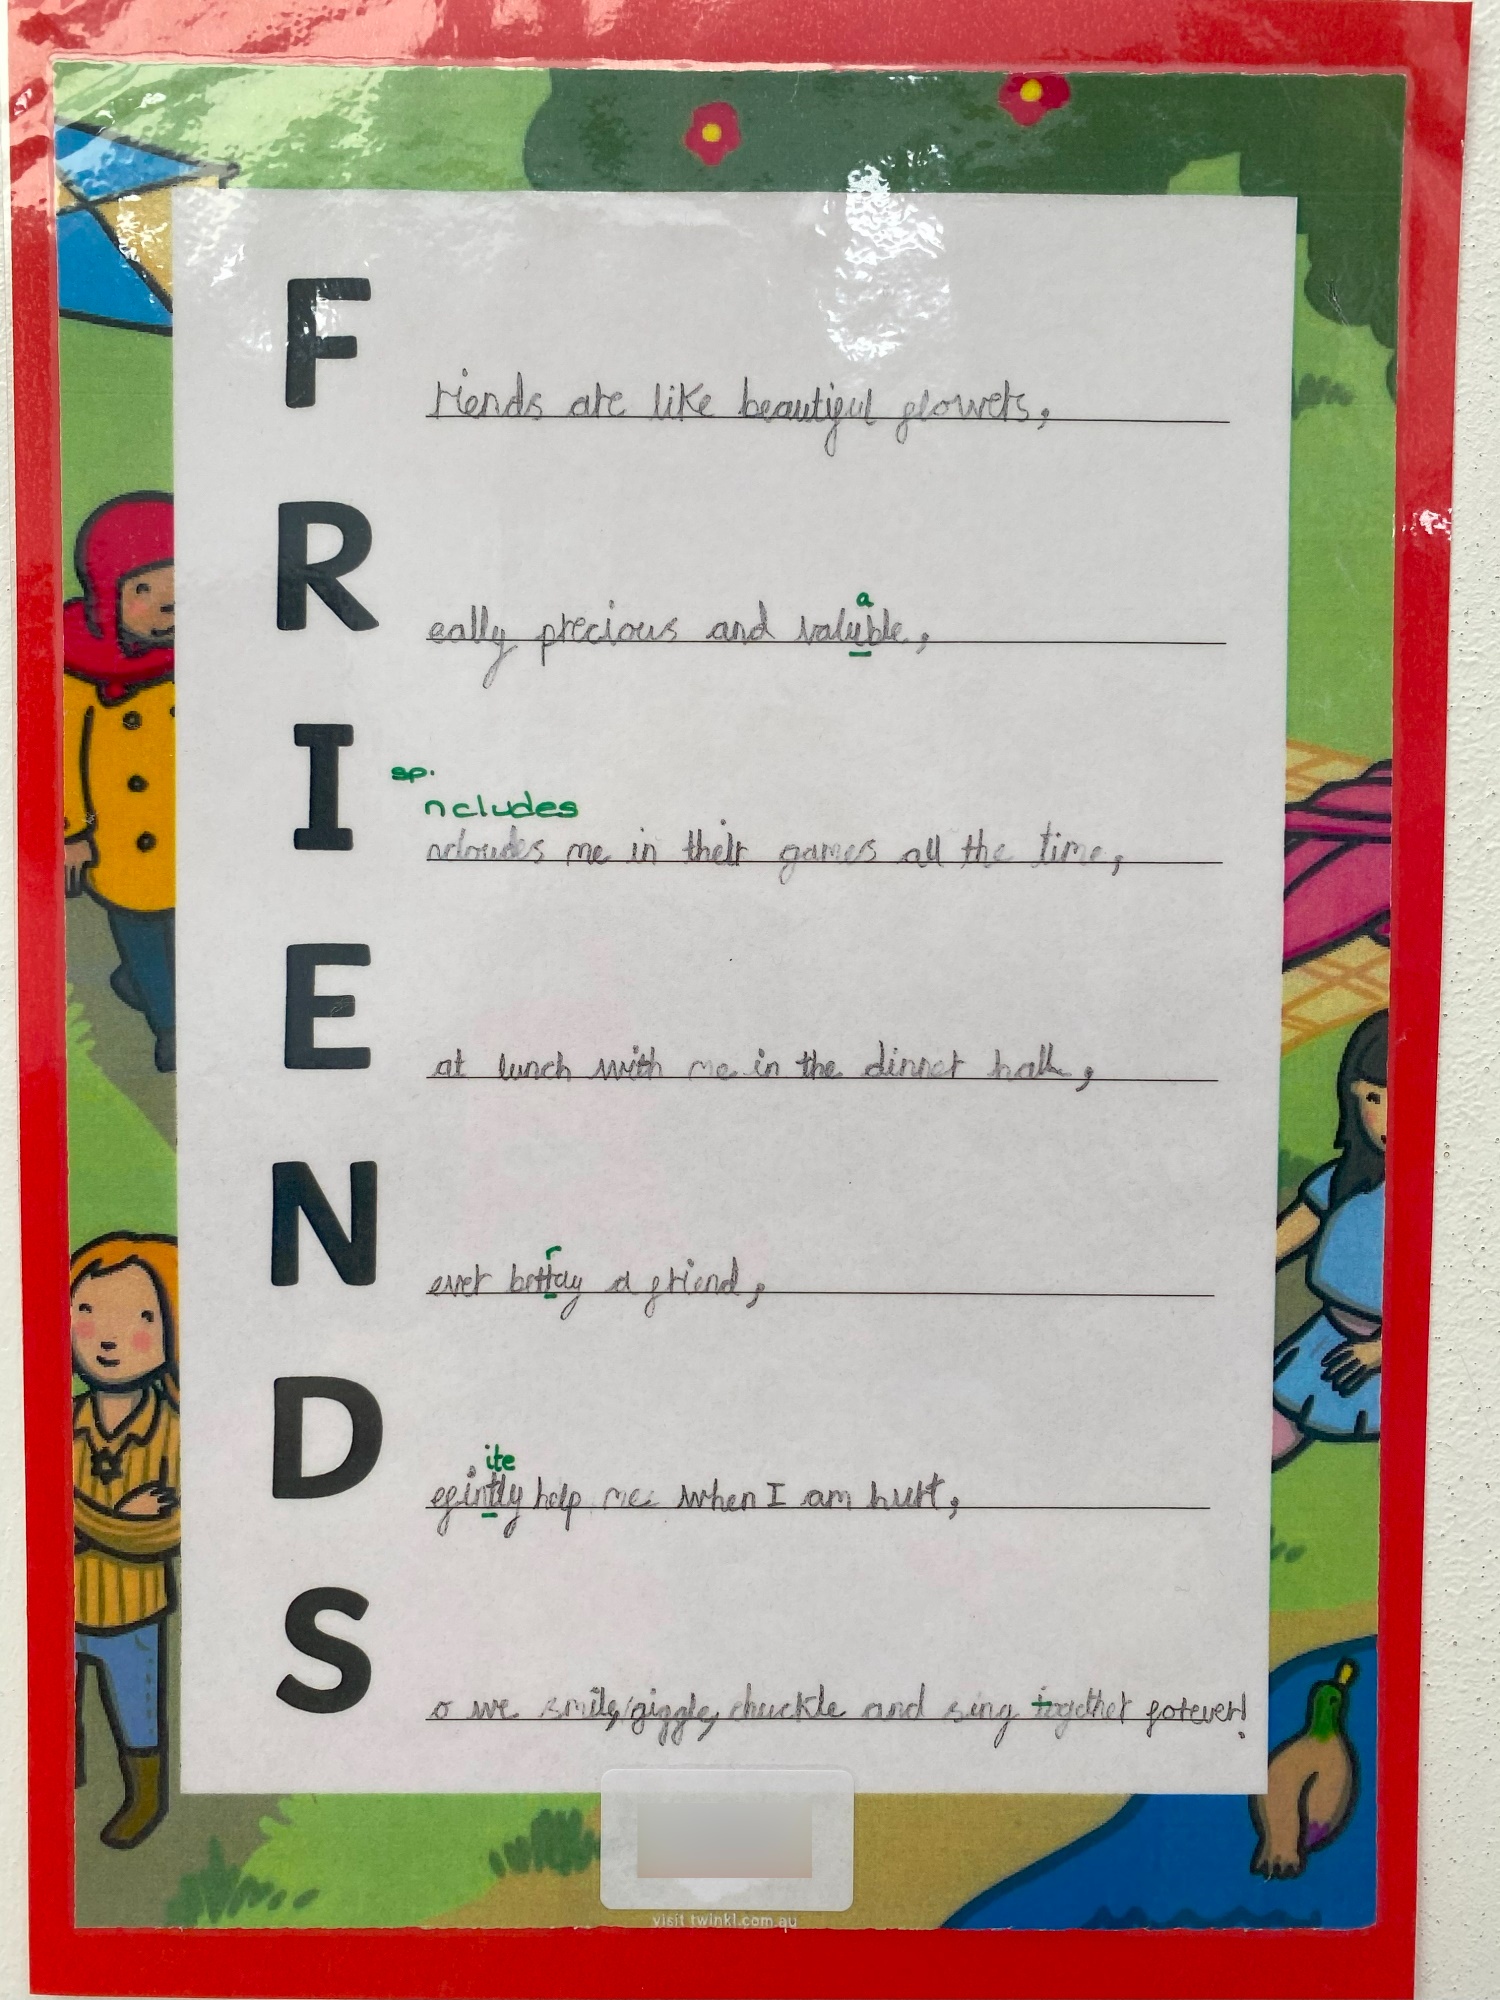 F
riends are like beautiful flowers,
R
a
eally precious and valuble,
I
sp.
ncludes
ncloudes me in their games all the time,
E
at lunch with me in the dinner hall,
N
r
ever bettay a friend,
D
ite
efintly help me when I am hurt,
S
o we smile, giggle, chuckle and sing together forever!
visit twinkl.com.au